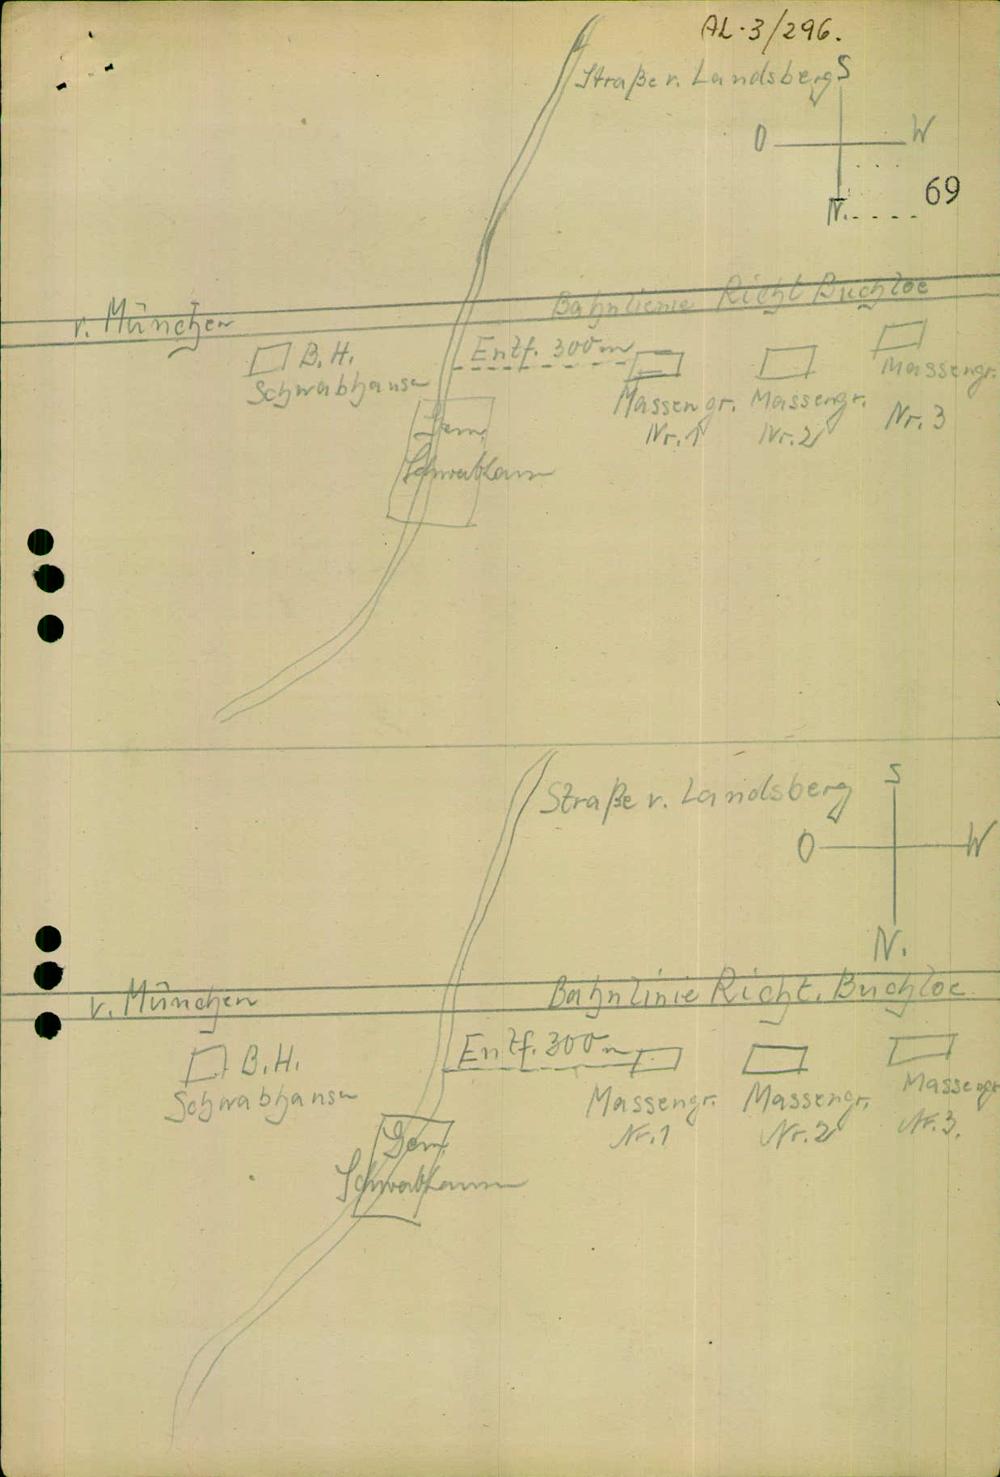 AL-3/296.
Straße v. Landsberg
S
O W
N.
69
v. München
Bahnlienie Richt Buchloe
B.H.
Schwabhausen
Entf. 300 m
Massengr.
Nr. 1
Massengr.
Nr. 2
Massengr.
Nr. 3
Gem.
Schwabhausen
Straße v. Landsberg
S
O W
N.
v. München
Bahnlinie Richt. Buchloe
B.H.
Schwabhausen
Entf. 300 m
Massengr.
Nr. 1
Massengr.
Nr. 2
Massengr.
Nr. 3.
Gem.
Schwabhausen